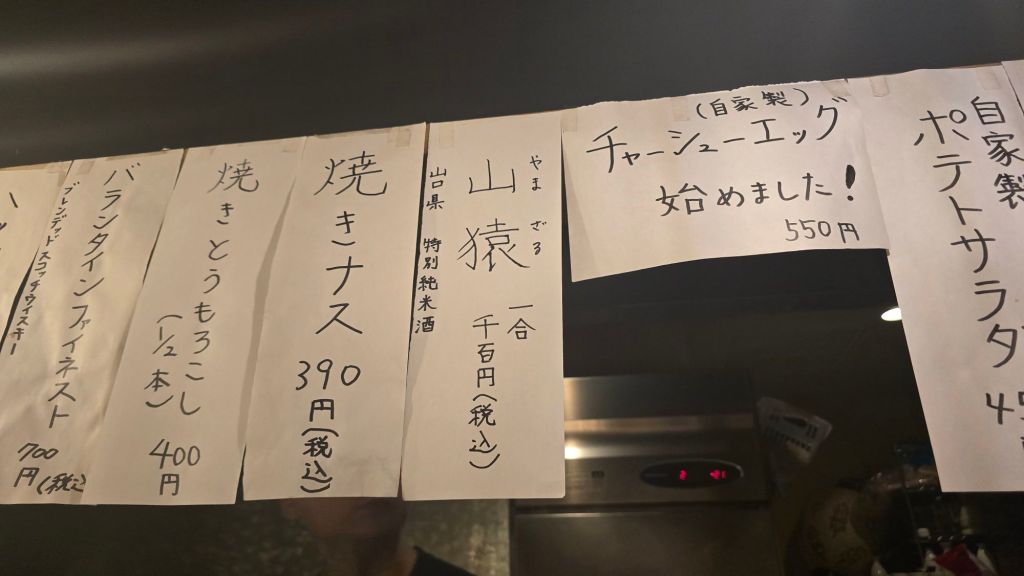 自家製
ポテトサラダ
(自家製)
チャーシューエッグ
始めました!
550円
やまざる
山猿
一合
千百円(税込)
山口県 特別純米酒
焼きナス
390円(税込)
焼きとうもろこし
(1/2本)
400円
バランタインファイネスト
ブレンデッドスコッチウイスキー
700円(税込